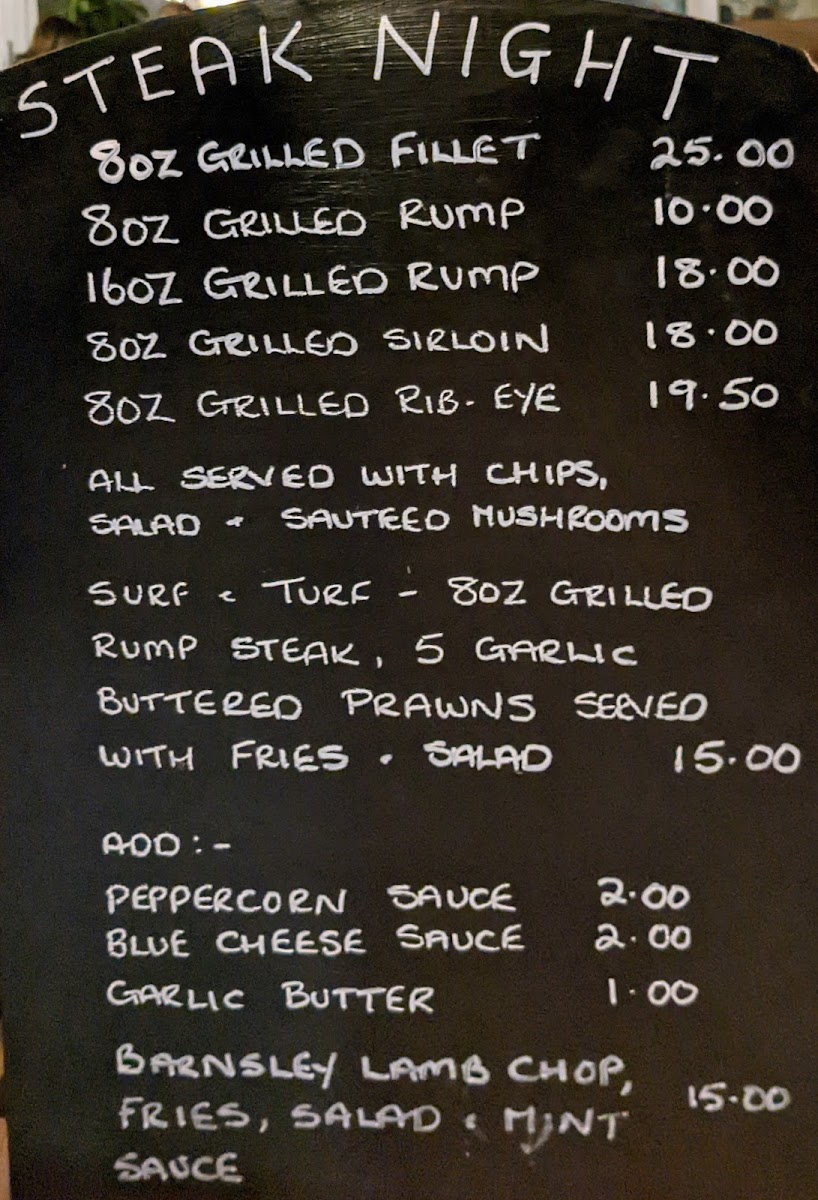 STEAK NIGHT
8OZ GRILLED FILLET 25.00
8OZ GRILLED RUMP 10.00
16OZ GRILLED RUMP 18.00
8OZ GRILLED SIRLOIN 18.00
8OZ GRILLED RIB-EYE 19.50
ALL SERVED WITH CHIPS,
SALAD + SAUTEED MUSHROOMS
SURF & TURF - 8OZ GRILLED
RUMP STEAK, 5 GARLIC
BUTTERED PRAWNS SERVED
WITH FRIES & SALAD 15.00
ADD:-
PEPPERCORN SAUCE 2.00
BLUE CHEESE SAUCE 2.00
GARLIC BUTTER 1.00
BARNSLEY LAMB CHOP,
FRIES, SALAD & MINT 15.00
SAUCE